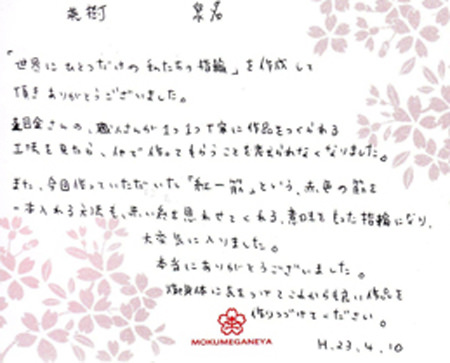 英樹 泉名
「世界にひとつだけの私たちの指輪」を作成して
頂きありがとうございました。
杢目金さんの、職人さんが1つ1つ丁寧に作品をつくられる
工程を見たら、他で作ってもらうことを考えられなくなりました。
また、今回作っていただいた「紅一筋」という、赤色の筋を
一本入れる方法も、赤い糸を思わせてくれる、意味をもった指輪になり、
大変気に入りました。
本当にありがとうございました。
御身体に気をつけてこれからも良い作品を
作りつづけてください。
MOKUMEGANEYA
H.23.4.10